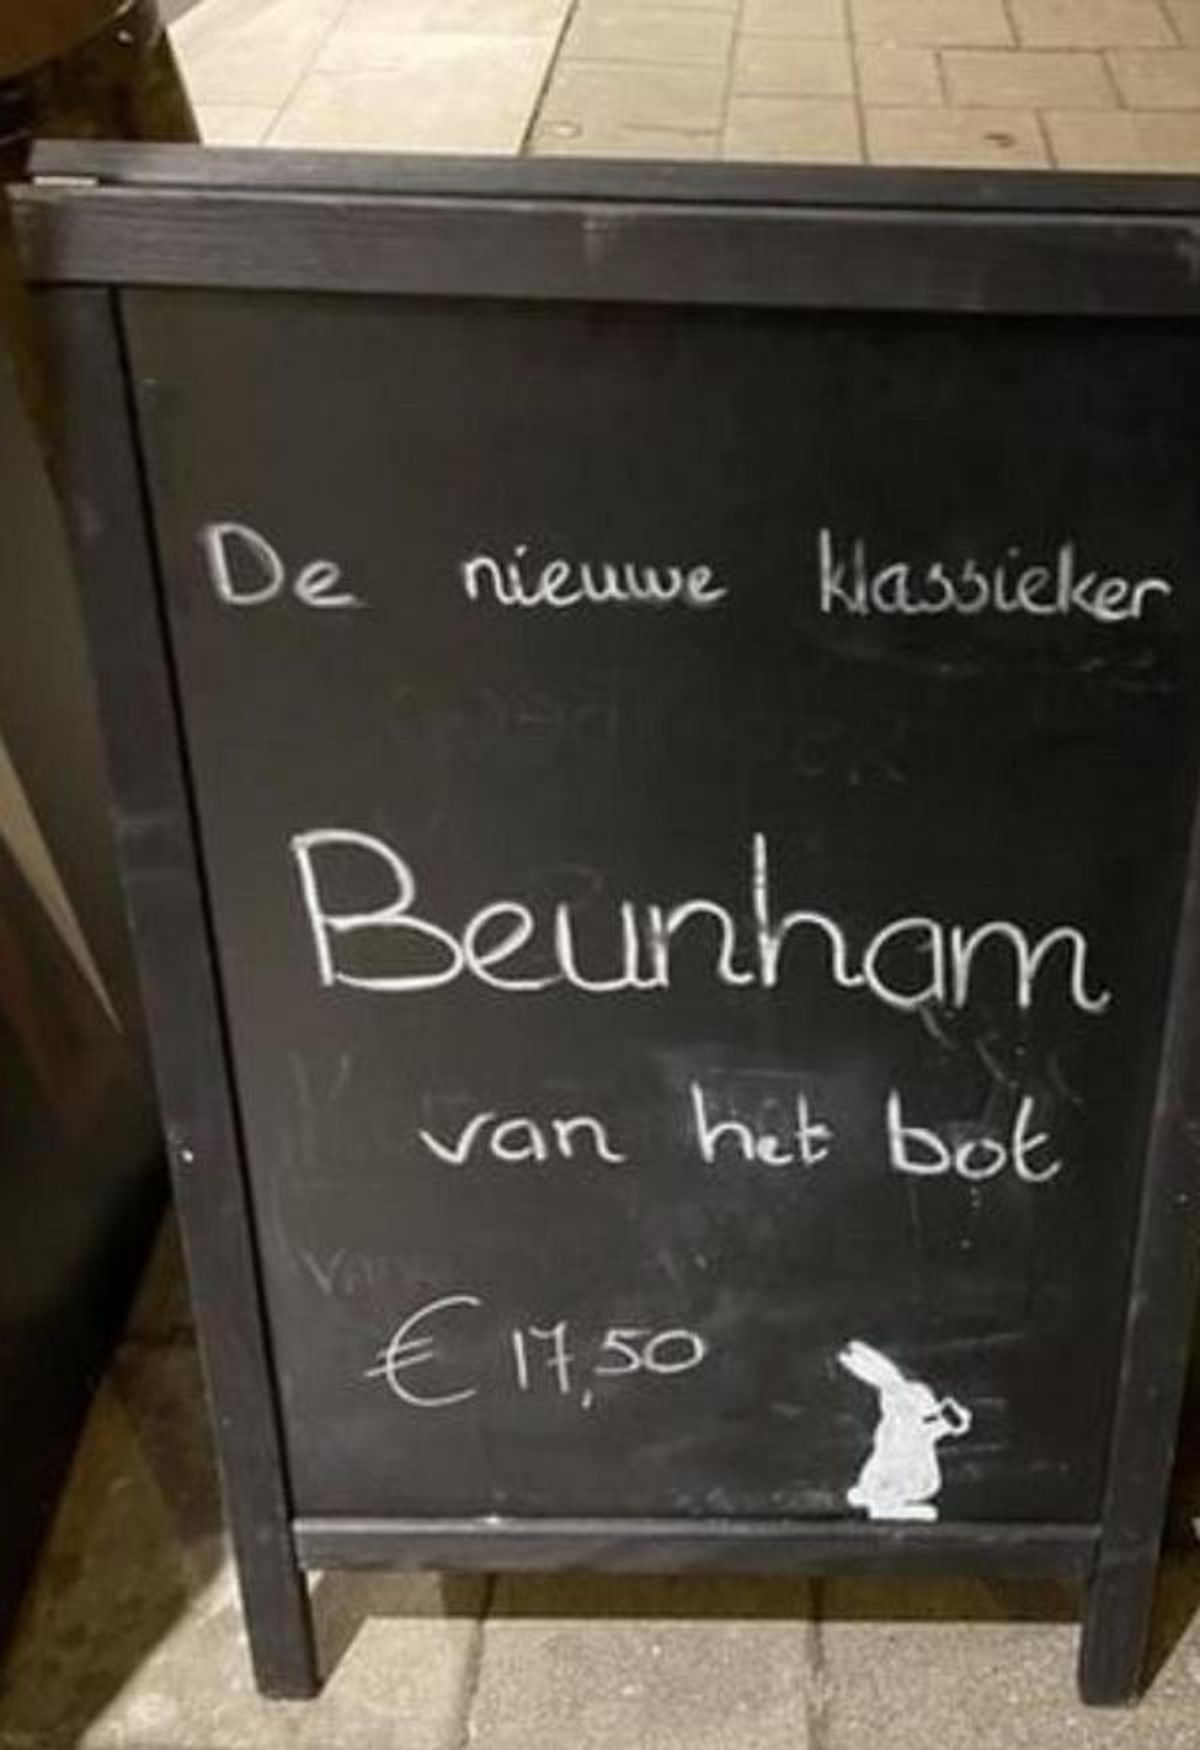 De nieuwe klassieker
Beunham
van het bot
€ 17,50